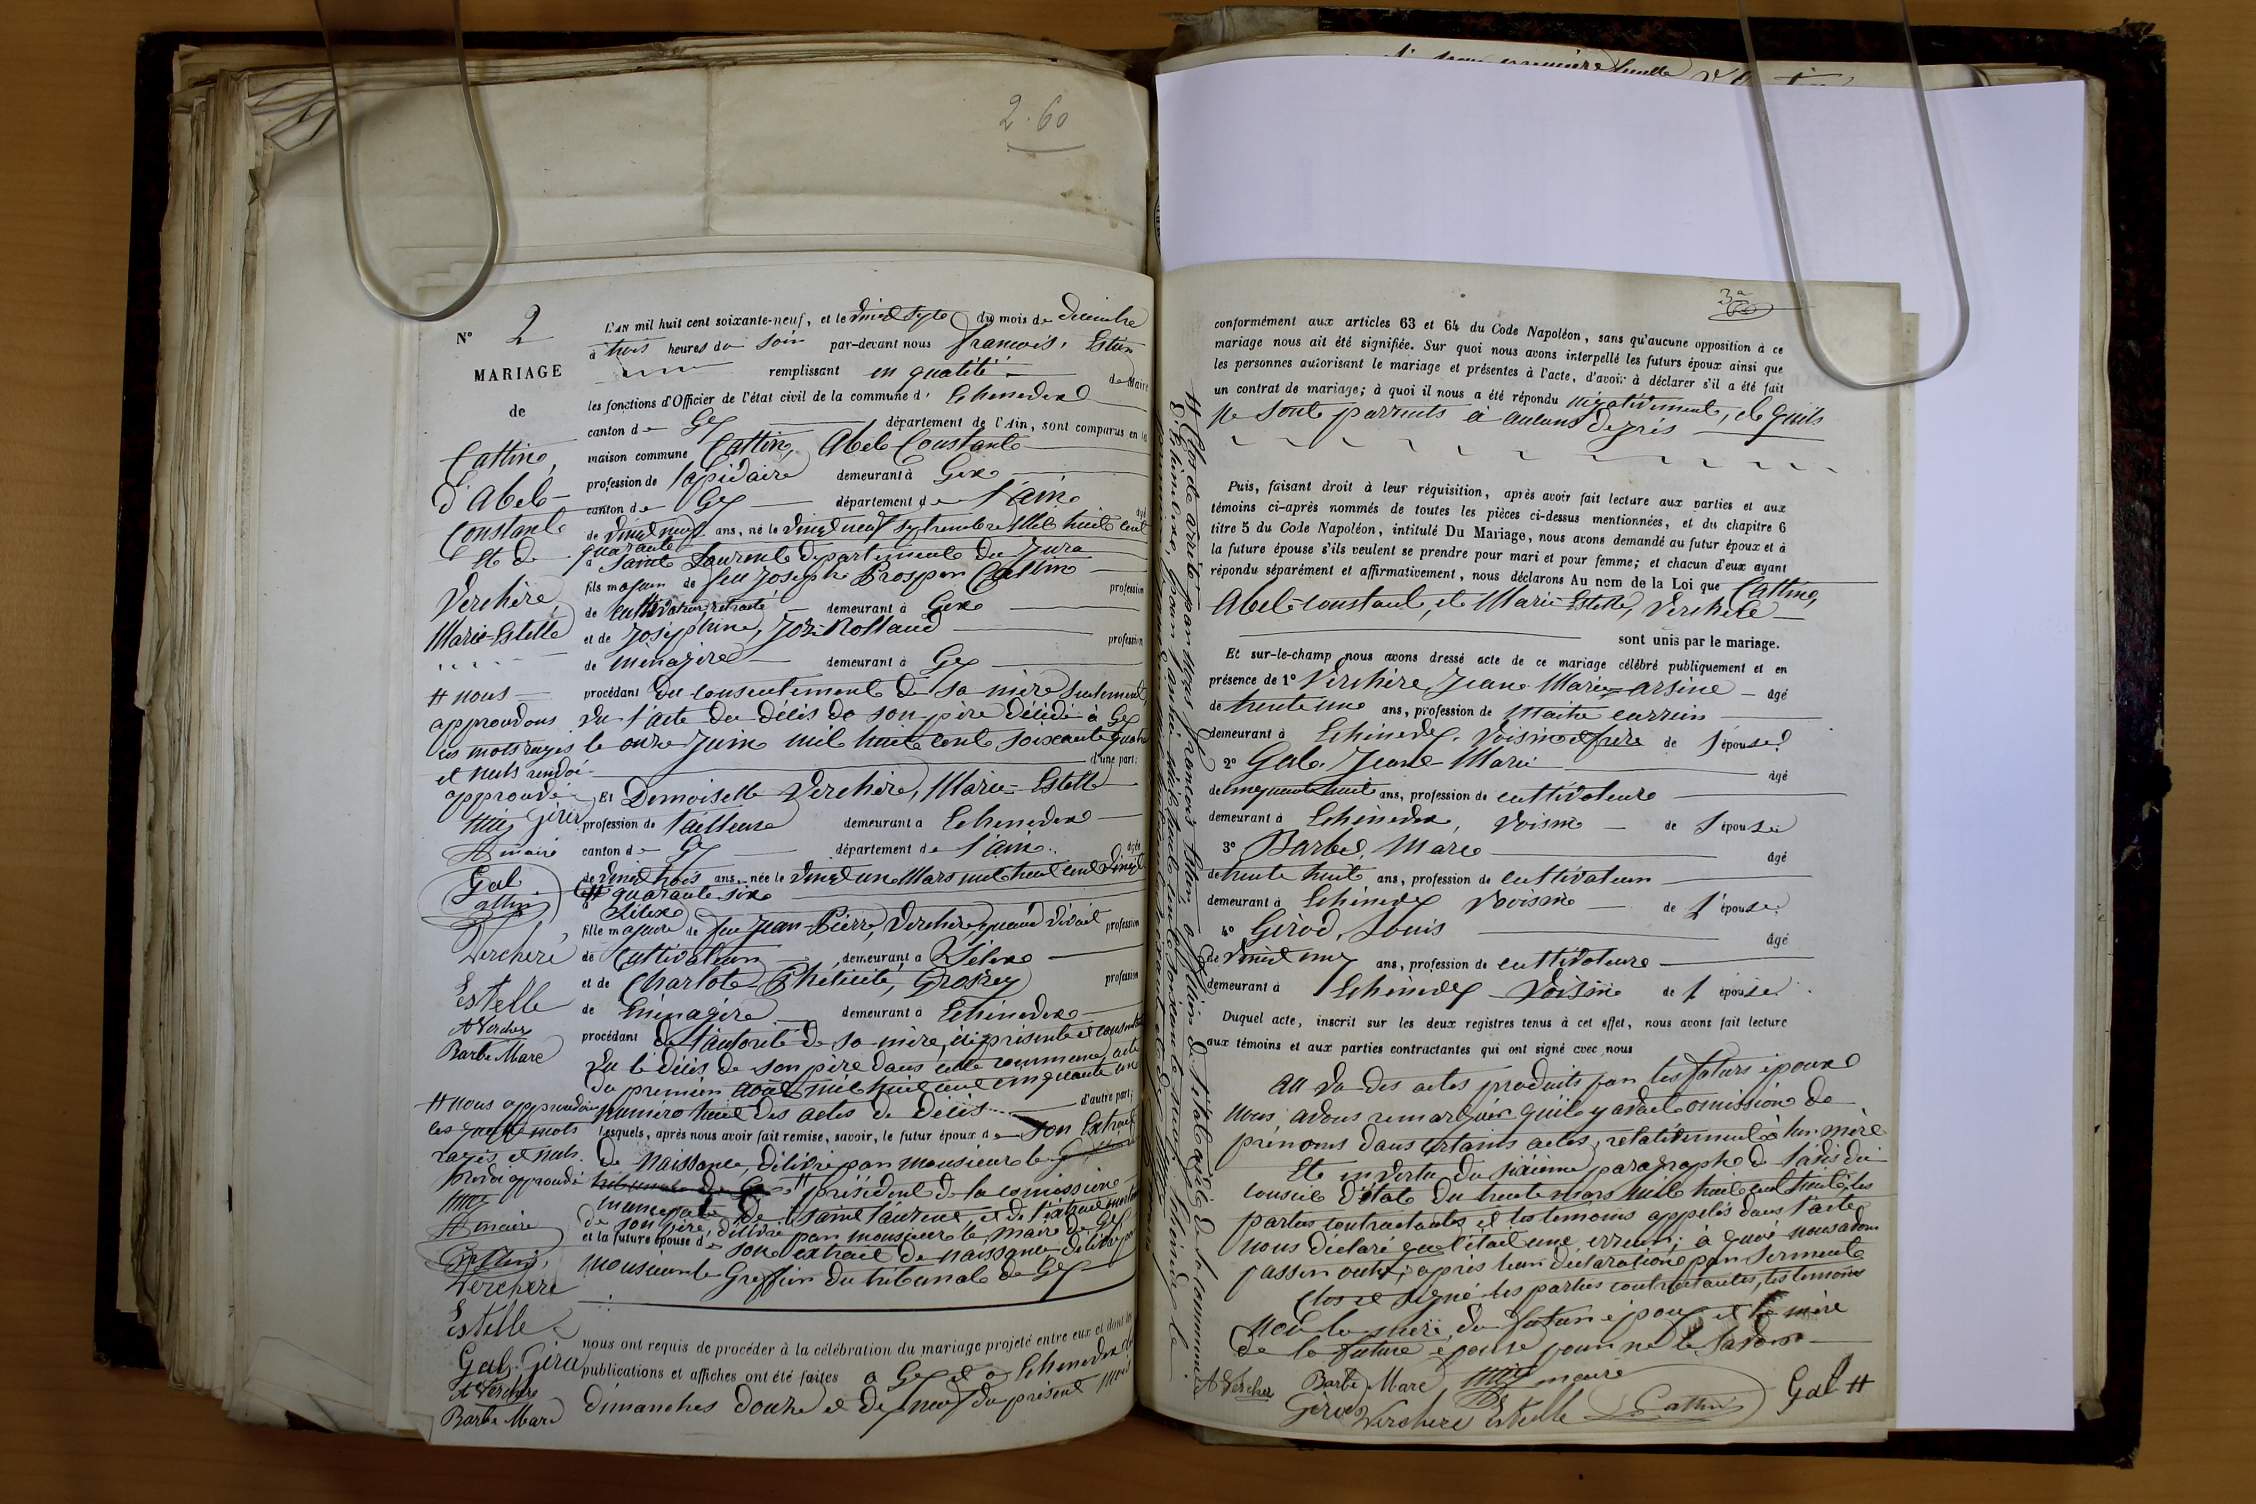 2.60
N° 2
MARIAGE
de
Cattin,
d'Abel-
Constant
Et de
Verchère,
Marie-Estelle
# nous
approuvons
ces mots rayés
et nuls
approuvé
maire
Gal
Cattin
Verchere
Estelle
A Verchere
Barbe Marc
# nous approuvons
les mots
rayés et nuls
approuvé
maire
Cattin
Verchere
Estelle
Gal. Girod
A Verchere
Barbe Marc
L'AN mil huit cent soixante-neuf, et le vingt sept du mois de décembre
à trois heures du soir par-devant nous françois, Estier
remplissant en qualité de Maire
les fonctions d'Officier de l'état civil de la commune d' Echenevex
canton de Gex département de l'Ain, sont comparus en la
maison commune Cattin, Abel Constant
profession de lapidaire demeurant à Gex
canton de Gex département de l'ain âgé
de vingt neuf ans, né le vingt neuf septembre Mil huit cent
quarante
à Saint Laurent département du Jura
fils majeur de feu Joseph Prosper Cattin profession
de cultivateur demeurant à Gex
et de Joséphine, Roland profession
de ménagère demeurant à Gex
procédant du consentement de sa mère seulement,
vu l'acte de décès de son père décédé à Gex
le onze Juin mil huit cent soixante quatre
d'une part;
Et Demoiselle Verchère, Marie-Estelle
profession de tailleuse demeurant à Echenevex
canton de Gex département de l'ain. âgée
de vingt trois ans, née le vingt un Mars mil huit cent vingt
# quarante six
fille majeure de feu Jean-Pierre, Verchère, quand vivait profession
de Cultivateur demeurant à
et de Charlote Phélicité, Grosrey profession
de ménagère demeurant à Echenevex
procédant de l'autorité de sa mère, ici présente et consentante
Vu le décès de son père dans cette commune, acte
du premier août mil huit cent cinquante un
numéro huit des actes de décès d'autre part;
Lesquels, après nous avoir fait remise, savoir, le futur époux de son Extrait
de Naissance, délivré par monsieur le
président de la comission
municipale de Saint Laurent et de l'extrait mortuaire
de son père, délivré par monsieur le maire de Gex
et la future épouse d' son extrait de naissance délivré par
monsieur le Greffier du tribunal de Gex
nous ont requis de procéder à la célébration du mariage projeté entre eux et dont les
publications et affiches ont été faites à Gex et à Echenevex les
dimanches douze et dix neuf du présent mois
conformément aux articles 63 et 64 du Code Napoléon, sans qu'aucune opposition à ce
mariage nous ait été signifiée. Sur quoi nous avons interpellé les futurs époux ainsi que
les personnes autorisant le mariage et présentes à l'acte, d'avoir à déclarer s'il a été fait
un contrat de mariage; à quoi il nous a été répondu négativement, et qu'ils
ne sont parents à aucuns degrés
Puis, faisant droit à leur réquisition, après avoir fait lecture aux parties et aux
témoins ci-après nommés de toutes les pièces ci-dessus mentionnées, et du chapitre 6
titre 5 du Code Napoléon, intitulé Du Mariage, nous avons demandé au futur époux et à
la future épouse s'ils veulent se prendre pour mari et pour femme; et chacun d'eux ayant
répondu séparément et affirmativement, nous déclarons Au nom de la Loi que Cattin,
Abel-constant, et Marie Estelle, Verchère
sont unis par le mariage.
Et sur-le-champ nous avons dressé acte de ce mariage célébré publiquement et en
présence de 1° Verchère, Jean Marie arsène âgé
de trente une ans, profession de Maitre carrier
demeurant à Echenevex. Voisin et frère de l'épouse
2° Gal. Jean-Marie âgé
de cinquante huit ans, profession de cultivateure
demeurant à Echenevex, voisin de l'épouse
3° Barbe, Marc âgé
de trente huit ans, profession de cultivateur
demeurant à Echenevex Voisin de l'épouse
4° Girod, Louis âgé
de vingt ans, profession de cultivateure
demeurant à Echenevex Voisin de l'épouse
Duquel acte, inscrit sur les deux registres tenus à cet effet, nous avons fait lecture
aux témoins et aux parties contractantes qui ont signé avec nous
au vu des actes produits par les futurs époux
nous avons remarquér qu'il y avait omission de
prénoms dans certains actes, relativement à leur mère
Et en vertu du sixième paragraphe de l'avis du
conseil d'état du trente mars mil huit cent huit, les
parties contractantes et les témoins appelés dans l'acte
nous déclaré que c'était une erreur; à quoi nous avons
passer outre; après leur déclaration par serment
Clos et signé les parties contractantes, les témoins
non la mère du futur époux et la mère
de la future épouse pour ne le savoir
A Verchere Barbe Marc maire Gal #
Girod Verchere Estelle Cattin